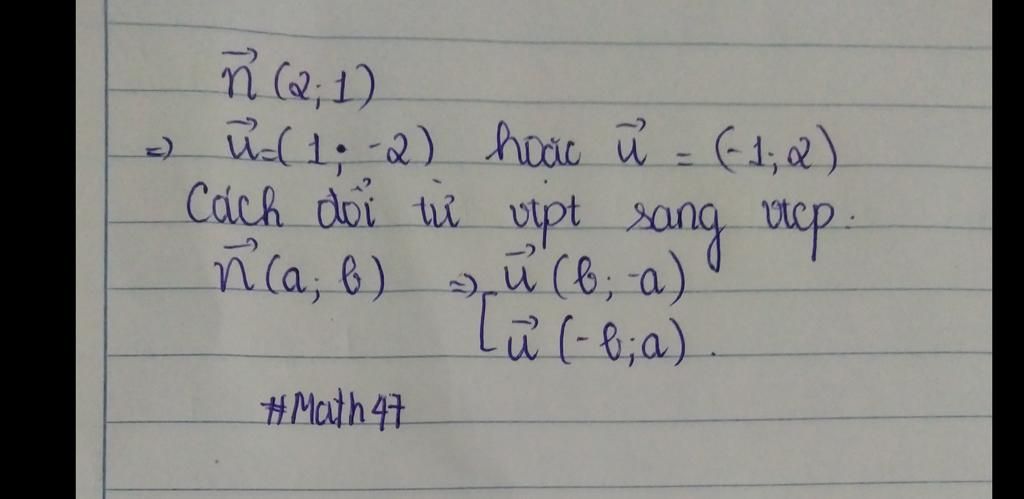 n⃗ (2; 1)
=> u⃗ = (1; -2) hoặc u⃗ = (-1; 2)
Cách đổi từ vtpt sang vtcp.
n⃗ (a; b) => u⃗ (b; -a)
[ u⃗ (-b; a).
#Math47